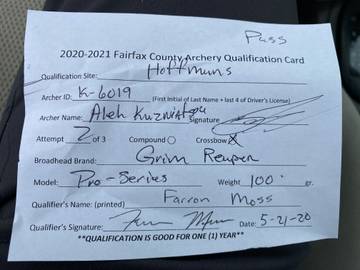 Pass
2020-2021 Fairfax County Archery Qualification Card
Qualification Site: Hoffmans
Archer ID: K-6019 (First Initial of Last Name + last 4 of Driver's License)
Archer Name: Aleh Signature
Attempt 2 of 3 Compound Crossbow X
Broadhead Brand: Grim Reaper
Model: Pro-Series Weight 100 gr.
Qualifier's Name: (printed) Farron Moss
Qualifier's Signature: Date: 5-21-20
**QUALIFICATION IS GOOD FOR ONE (1) YEAR**